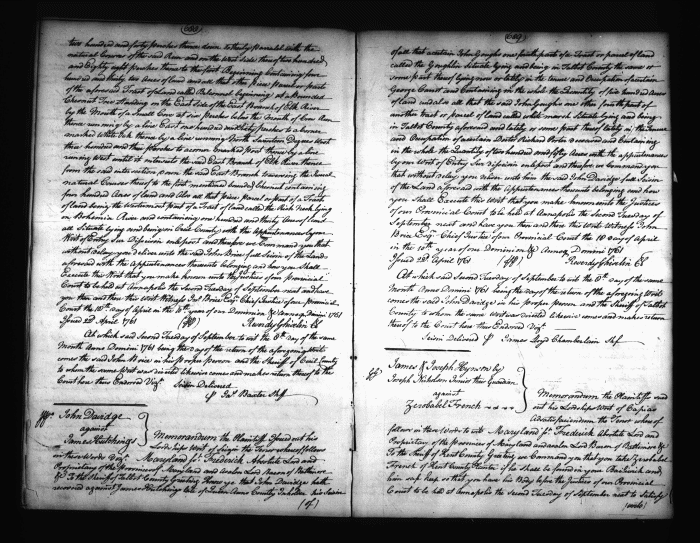 688
two hundred and forty perches thence down to thirty parallel with the
natural Courses of the said River and on the West sides thereof two hundred
and Eighty eight perches thence to the first Beginning Containing four
hundred and thirty two Acres of land and also that other piece or parcel
of the aforesaid Tract of Land called Bohemia beginning at a Bounded
Chesnut Tree Standing on the East side of the East Branch of Elk River
by the Mouth of a Small Cove at six perches below the Mouth of
thence running by a line East one hundred and sixty perches to a
marked White Oak thence by a line running North Seventeen Degrees West
three hundred and five perches to a corner marked thence by a line
running West until it intersects the said East Branch of Elk River thence
from the said intersection down the said East Branch the several
natural Courses thereof to the first mentioned bounded Chesnut containing
four hundred Acres of land and also all that piece or parcel or part of a Tract
of land being the part of a Tract of land called the lying
on Bohemia River and containing one hundred and thirty Acres of land
all Situate lying and being in Cecil County with the Appurtenances by our
Writ of Entry Sur Disseisin in le post and therefore we Command you that
without delay you deliver unto the said John Brice full Seisin of the Land
aforesaid with the Appurtenances thereunto belonging and how you Shall
Execute this Writ that you make known unto the Justices of our provincial
Court to be held at Annapolis the Second Tuesday of September next and have
you then and there this Writ Witness Jno Brice Esqr Chief Justice of our provincial
Court the 10th day of April in the 10th year of our Dominion &c Annoq Domini 1761
Issued 22d April 1761
At which said Second Tuesday of September to wit the 8th day of the same
Month Anno Domini 1761 being the day of the return of the aforegoing Writ
comes the said John Brice in his proper person and the Sheriff of Cecil County
to whom the same Writ was directed likewise comes and makes return thereof to the
Court here thus Endorsed Vizt. Seisin Delivered
Baxter Shff
John Davidge
against
James Hutchings
Memorandum the Plaintiff Issued out his
Lordships Writ of the Tenor whereof follows
in these Words Vizt. Maryland ss. Frederick Absolute Lord and
Proprietary of the Provinces of Maryland and Avalon Lord Baron of Baltimore
&c To the Sheriff of Talbot County Greeting Whereas John Davidge hath
recovered against James Hutchings late of Queen Anns County Inholder his Seisin
(of)
689
of all that a certain John Goughs one fourth part of a Tract or parcel of land
called the Situate lying and being in Talbot County the same or
some part thereof lying now or lately in the tenure and Occupation of a certain
George Garnet and Containing in the whole the Quantity of five hundred Acres
of land and also all that the said John Goughs one other fourth part of
another tract or parcel of land called Situate lying and being
in Talbot County aforesaid and lately or some part thereof lately in the tenure
and Occupation of a certain David Richard Porter deceased and Containing
in the whole the Quantity of two hundred and fifty Acres with the appurtenances
by our Writ of Entry Sur Disseisin in le post and therefore we Command you
that without delay you deliver unto him the said John Davidge full Seisin
of the Land aforesaid with the Appurtenances thereunto belonging and how
you shall Execute this Writ that you make known unto the Justices
of our Provincial Court to be held at Annapolis the Second Tuesday of
September next and have you then and there this Writ Witness John
Brice Esqr. Chief Justice of our Provincial Court the 10 day of April
in the 10th year of our Dominion & Annoq Domini 1761
Issued 22d April 1761
At which said Second Tuesday of September to wit the 8th day of the same
Month Anno Domini 1761 being the day of the return of the aforegoing Writ
comes the said John Davidge in his proper person and the Sheriff of Talbot
County to whom the same writ was directed likewise comes and makes return
thereof to the Court here thus Endorsed Vizt.
Seisin Delivered p James Loyd Chamberlain Shf
James & Joseph Hynson by
Joseph Nicholson Junior their Guardian
against
Zerobabel French
Memorandum the Plaintiffs sued
out his Lordships Writ of Capias
Ad satisfaciendum the Tenor whereof
follows in these Words to wit Maryland ss. Frederick Absolute Lord and
Proprietary of the Provinces of Maryland and Avalon Lord Baron of Baltimore &c
To the Sheriff of Kent County Greeting we Command you that you take Zerobabel
French of Kent County Planter if he shall be found in your Bailiwick and
him safe keep so that you have his Body before the Justices of our Provincial
Court to be held at Annapolis the Second Tuesday of September next to Satisfy
(unto)